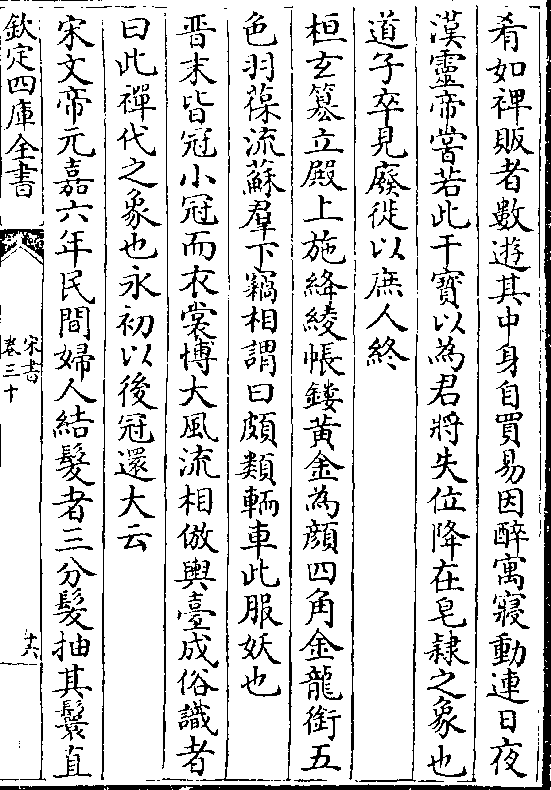 肴如裨販者數遊其中身自買易因醉寓寢動連日夜
漢靈帝嘗若此干寶以為君將失位降在皂隷之象也
道子卒見廢徙以庶人終
桓玄簒立殿上施絳綾帳鏤黄金為顔四角金龍銜五
色羽葆流蘇羣下竊相謂曰頗類輀車此服妖也
晋末皆冠小冠而衣裳博大風流相倣輿臺成俗識者
曰此禪代之象也永初以後冠還大云
宋文帝元嘉六年民間婦人結髮者三分髮抽其鬟直
欽定四庫全書
宋書
卷三十
十六